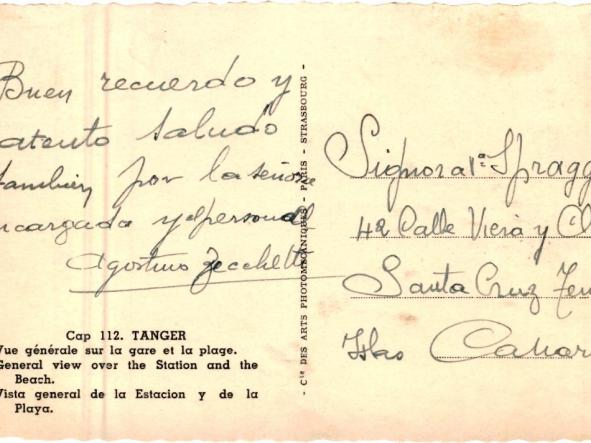 Buen recuerdo y
atento saludo
tambien por la señora
encargada y personal
Agostino Zecchetto
Cap 112. TANGER
Vue générale sur la gare et la plage.
General view over the Station and the
Beach.
Vista general de la Estacion y de la
Playa.
- Cie DES ARTS PHOTOMECANIQUES - PARIS - STRASBOURG -
Signora
42 Calle Viera y
Santa Cruz
Islas